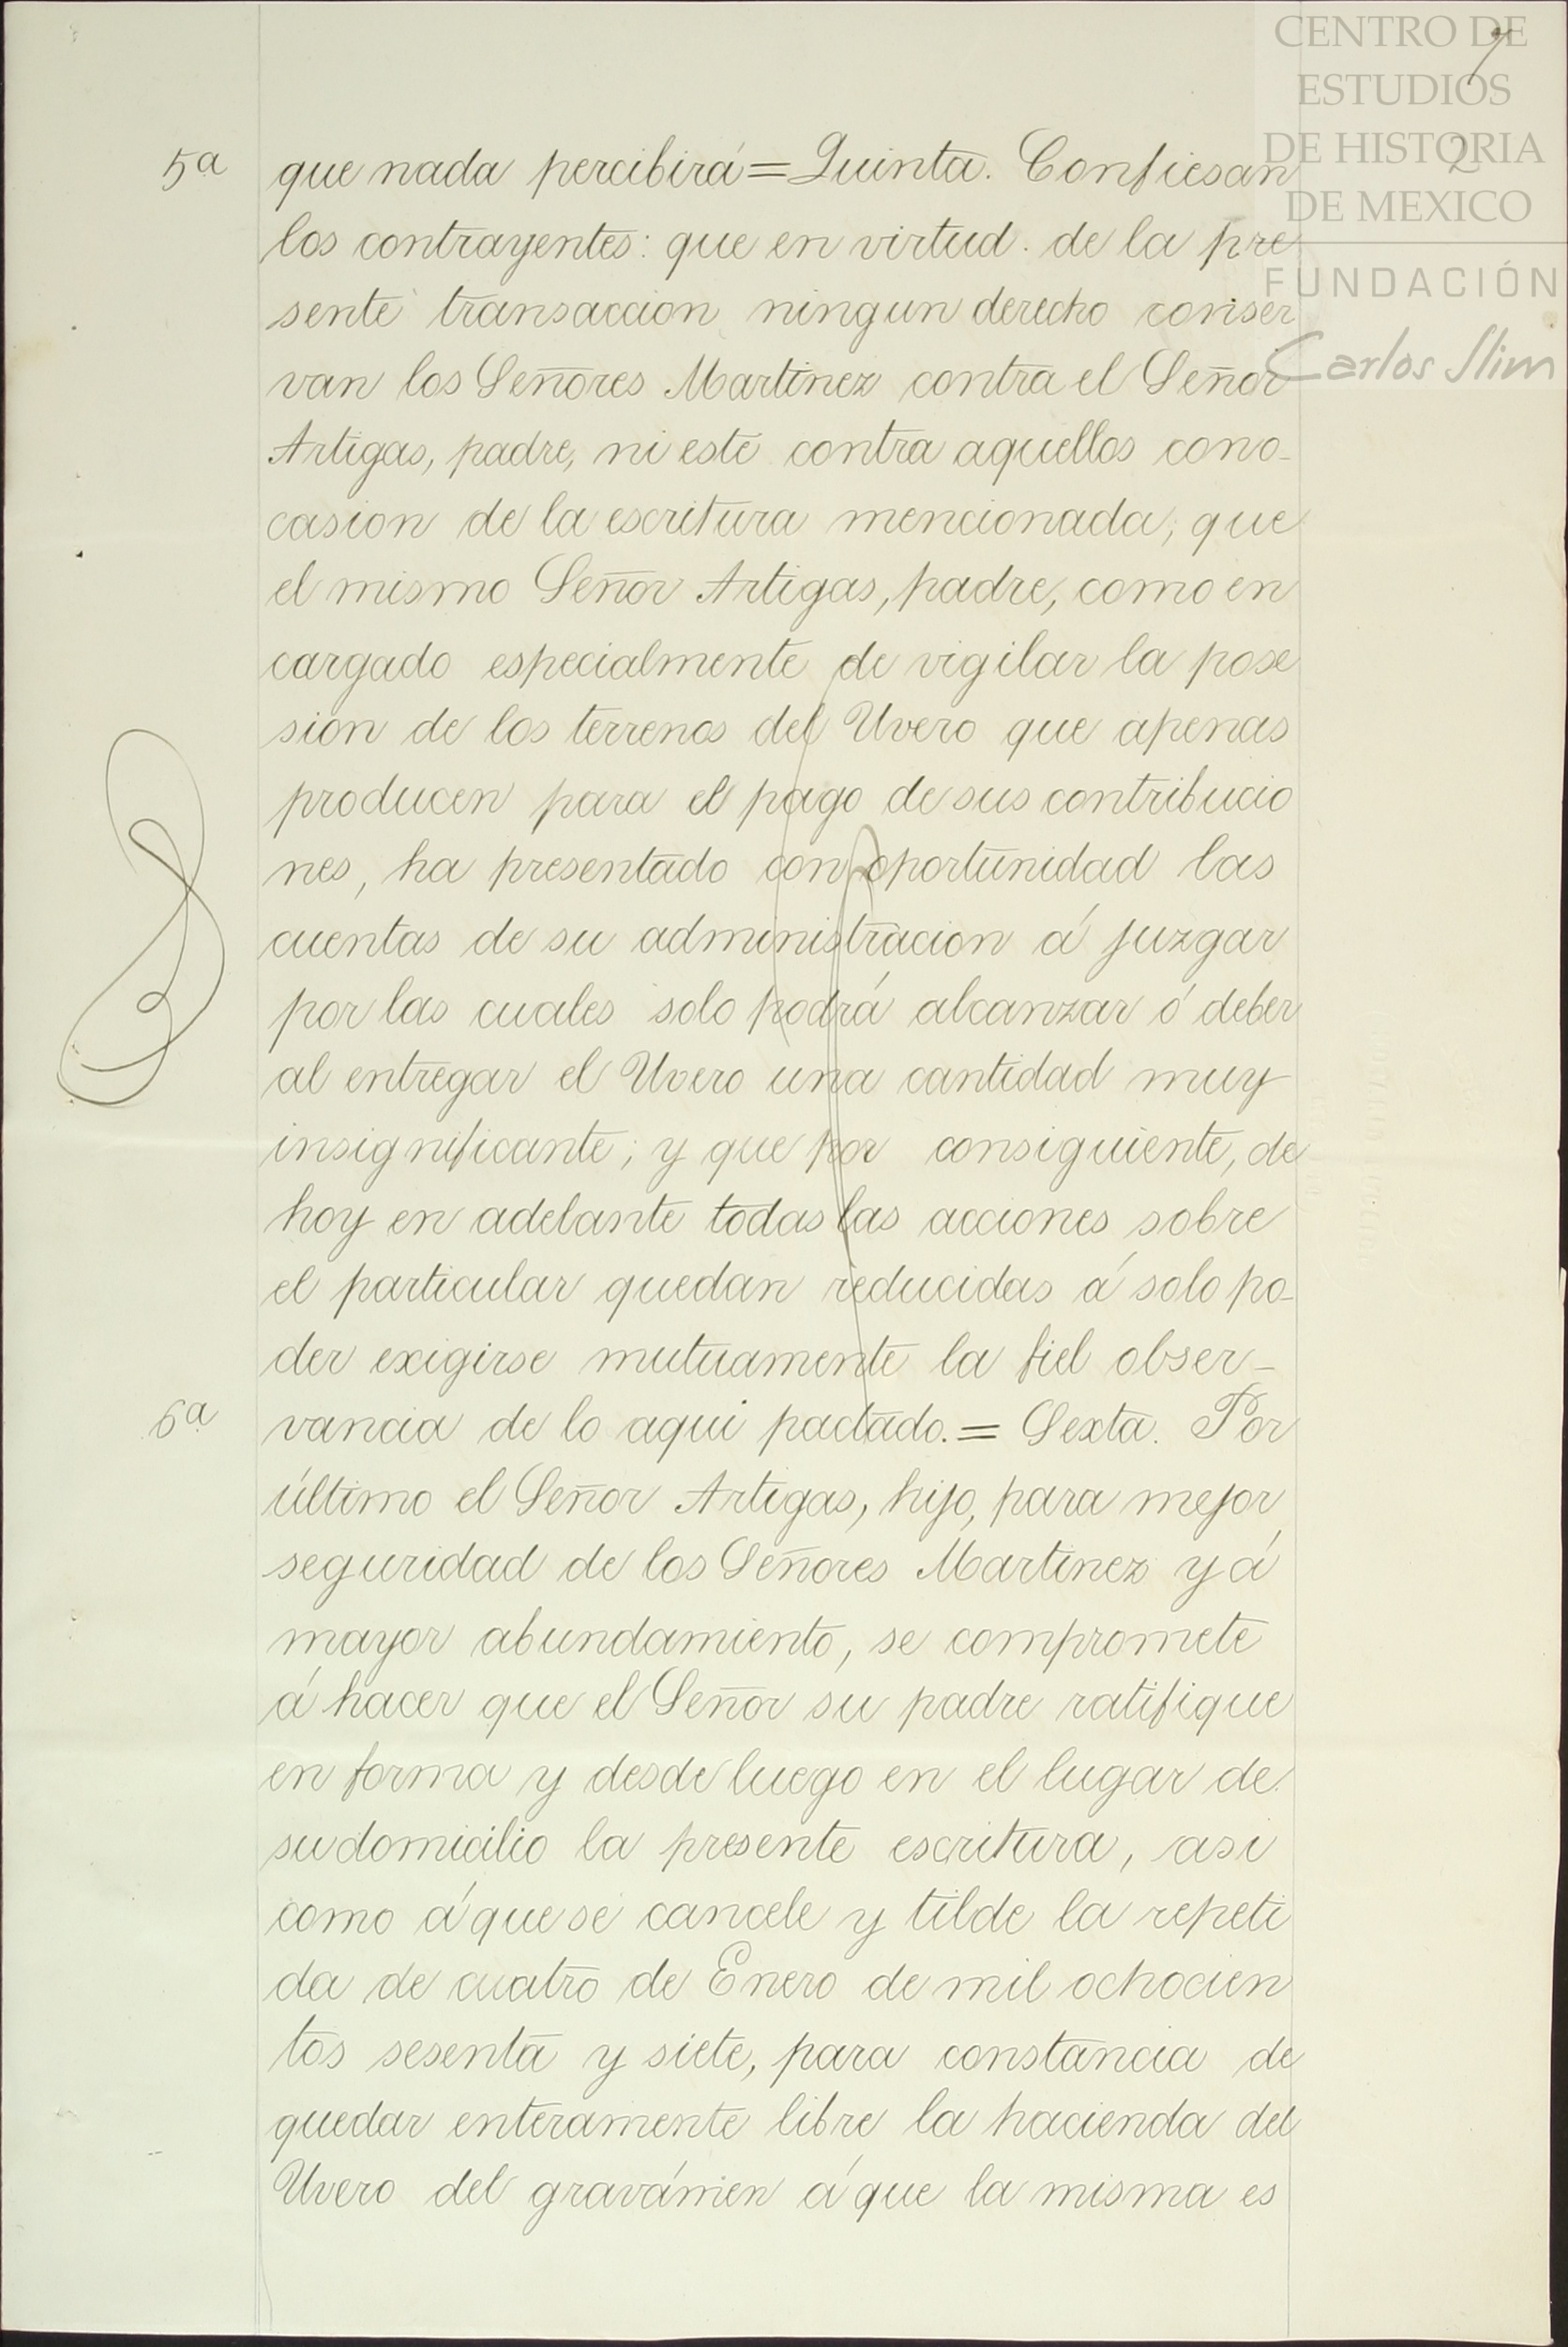 CENTRO DE
ESTUDIOS
DE HISTORIA
DE MEXICO
FUNDACIÓN
Carlos Slim
7
2
5ª que nada percibirá = Quinta. Confiesan
los contrayentes: que en virtud de la pre
sente transaccion ningun derecho conser
van los Señores Martinez contra el Señor
Artigas, padre, ni este contra aquellos cono-
casion de la escritura mencionada, que
el mismo Señor Artigas, padre, como en
cargado especialmente de vigilar la pose
sion de los terrenos del Uvero que apenas
producen para el pago de sus contribucio
nes, ha presentado con oportunidad las
cuentas de su administracion á juzgar
por las cuales solo podrá alcanzar ó deber
al entregar el Uvero una cantidad muy
insignificante; y que por consiguiente, de
hoy en adelante todas las acciones sobre
el particular quedan reducidas á solo po-
der exigirse mutuamente la fiel obser-
6ª vancia de lo aqui pactado. = Sexta. Por
último el Señor Artigas, hijo, para mejor
seguridad de los Señores Martinez y á
mayor abundamiento, se compromete
á hacer que el Señor su padre ratifique
en forma y desde luego en el lugar de
su domicilio la presente escritura, asi
como á que se cancele y tilde la repeti
da de cuatro de Enero de mil ochocien
tos sesenta y siete, para constancia de
quedar enteramente libre la hacienda del
Uvero del gravámen á que la misma es